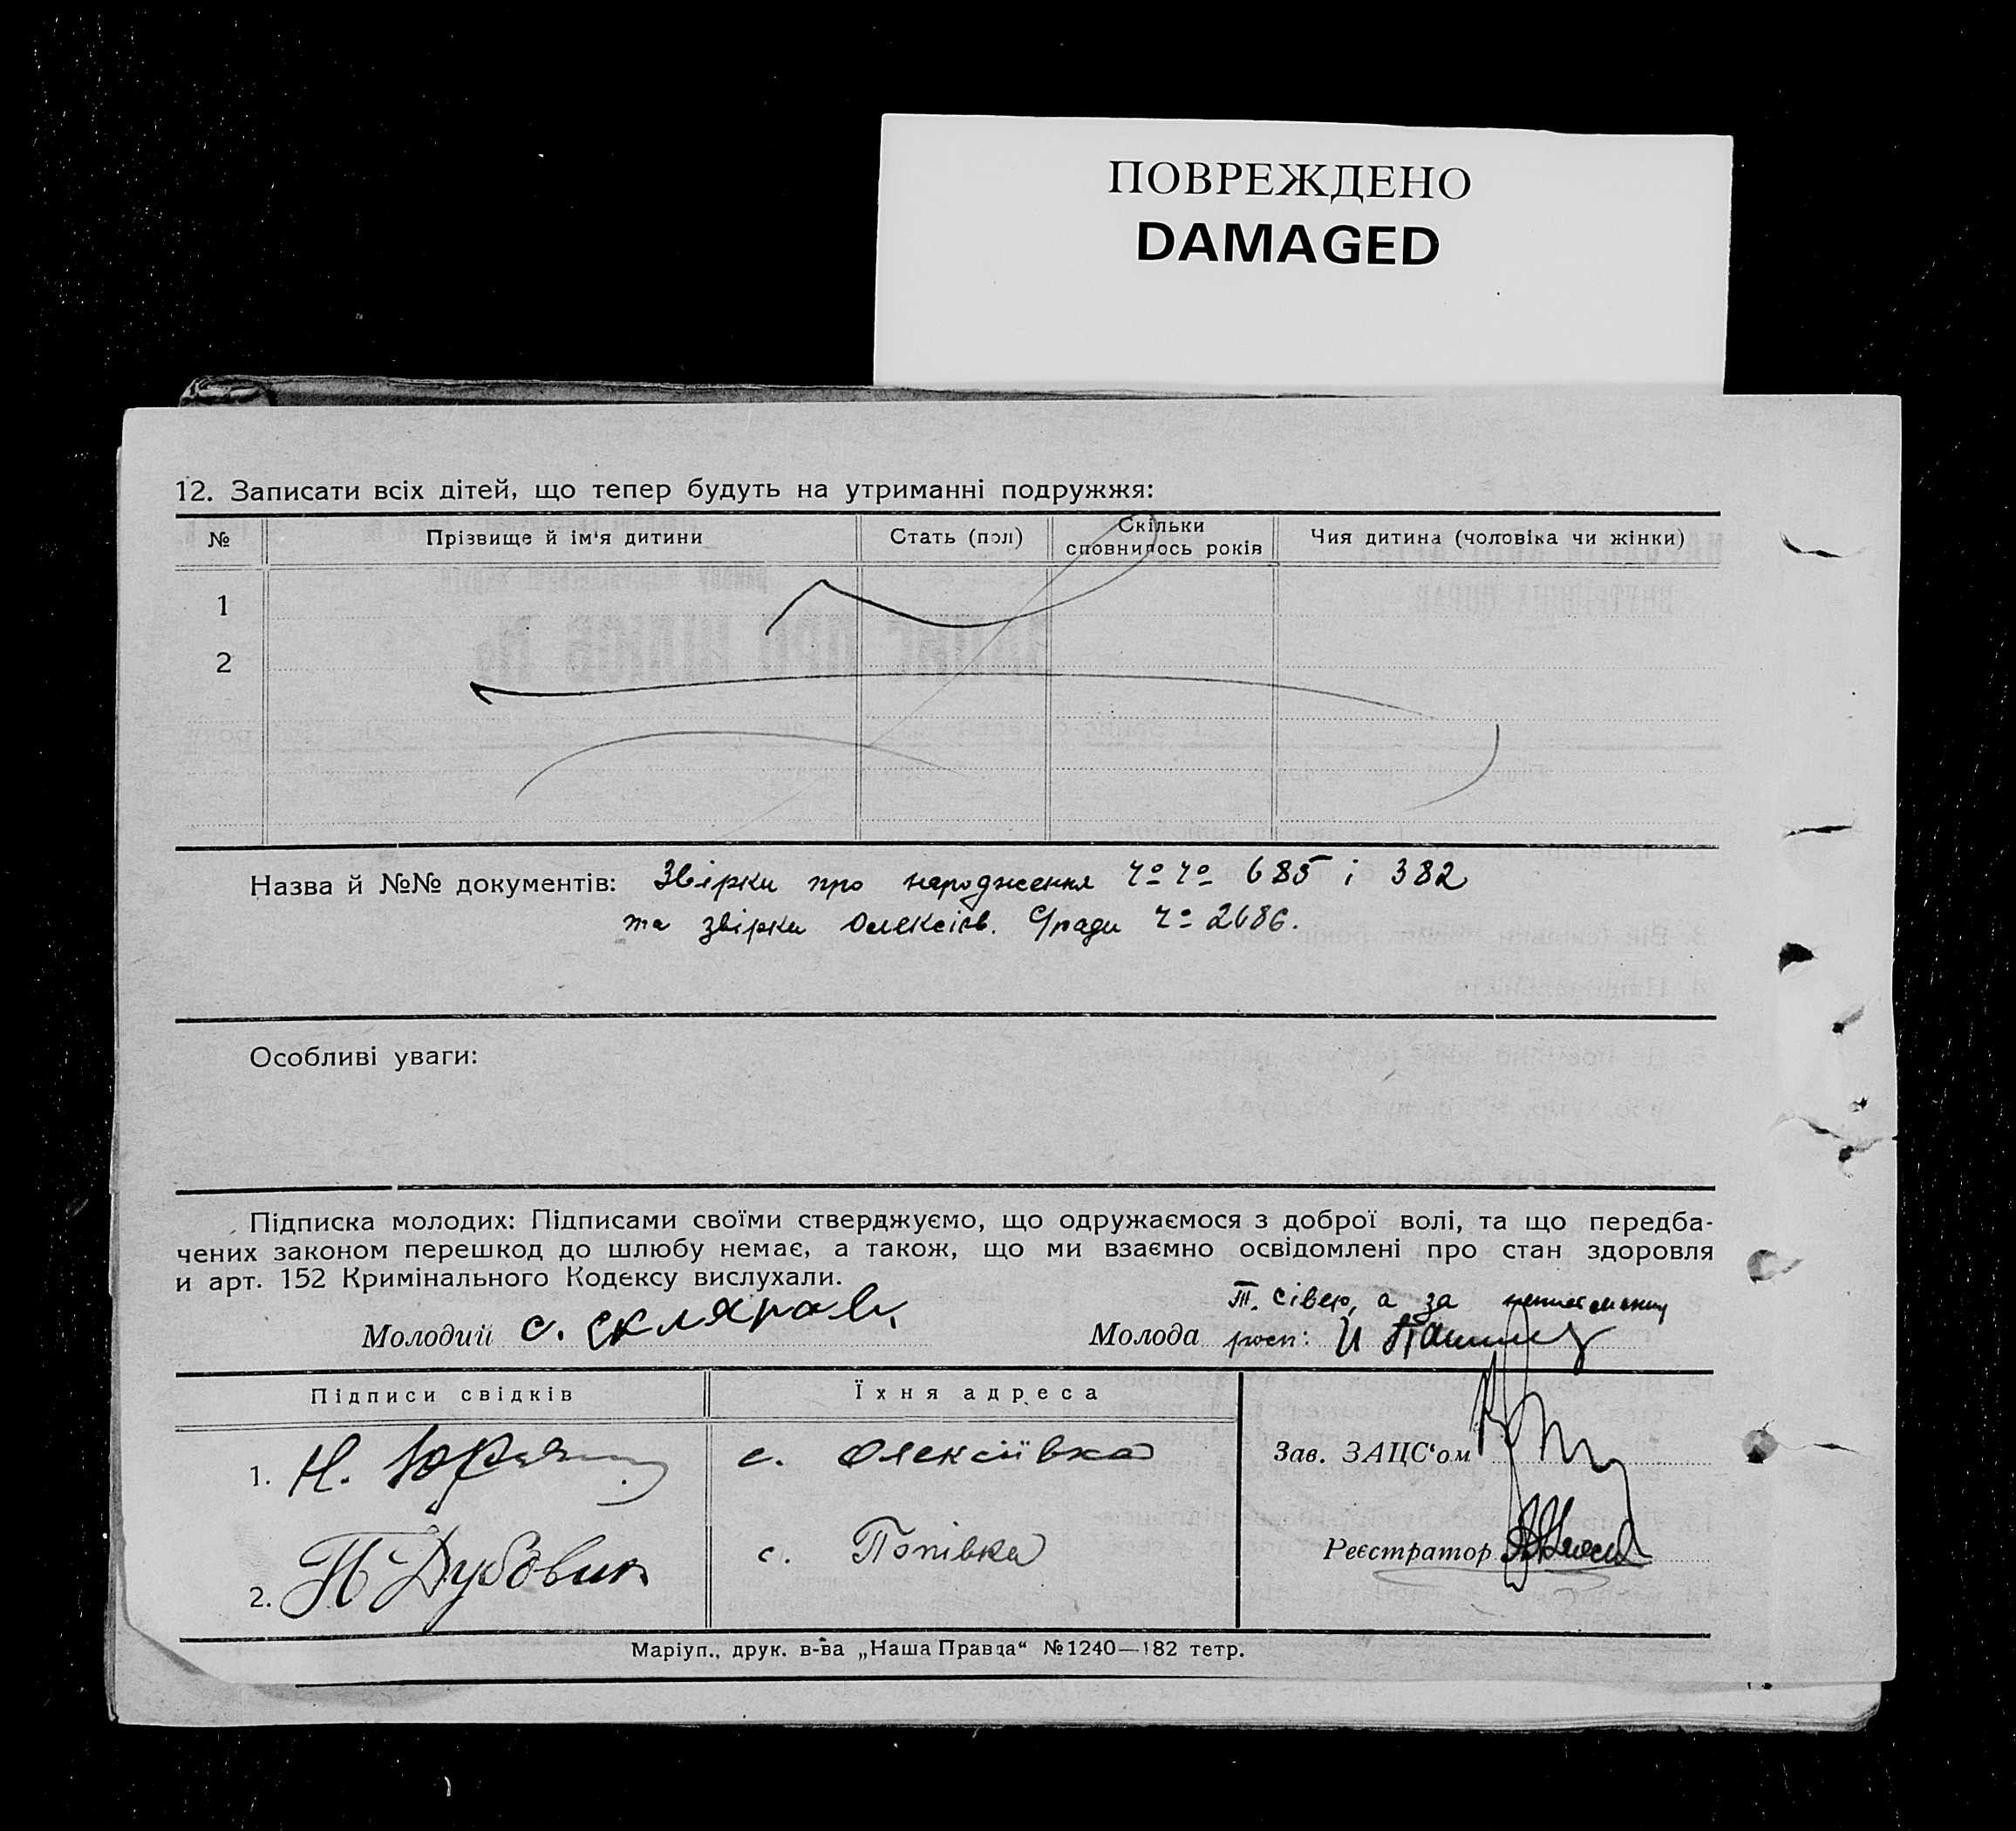 ПОВРЕЖДЕНО
DAMAGED
12. Записати всіх дітей, що тепер будуть на утриманні подружжя:
№ Прізвище й ім'я дитини Стать (пол) Скільки сповнилось років Чия дитина (чоловіка чи жінки)
1
2
Назва й №№ документів: Звірки про народження ч⁰ ч⁰ 685 і 382
та звірки Олексіїв. С/ради ч⁰ 2686.
Особливі уваги:
Підписка молодих: Підписами своїми стверджуємо, що одружаємося з доброї волі, та що передба-
чених законом перешкод до шлюбу немає, а також, що ми взаємно освідомлені про стан здоровля
и арт. 152 Кримінального Кодексу вислухали.
а за
Молодий С. Скляров
Молода росп:
Підписи свідків Їхня адреса
1. Н. с. Олексіівка
Зав. ЗАЦС'ом
2. Дубовик с. Попівка
Реєстратор
Маріуп., друк. в-ва „Наша Правда“ №1240—182 тетр.